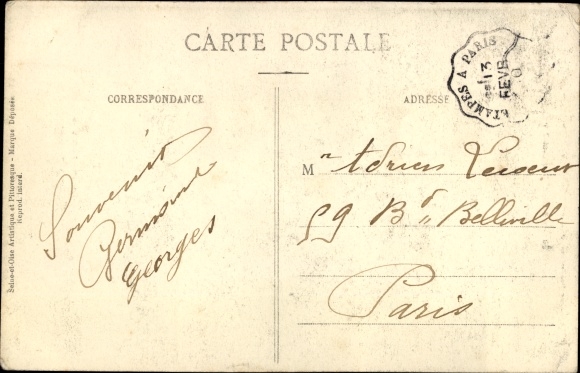 CARTE POSTALE
ÉTAMPES A PARIS
13
FEVR
CORRESPONDANCE
ADRESSE
Seine-et-Oise Artistique et Pittoresque - Marque Déposée
Reprod. interd.
Souvenir
Georges
Mr Adrien
59 Bd Belleville
Paris